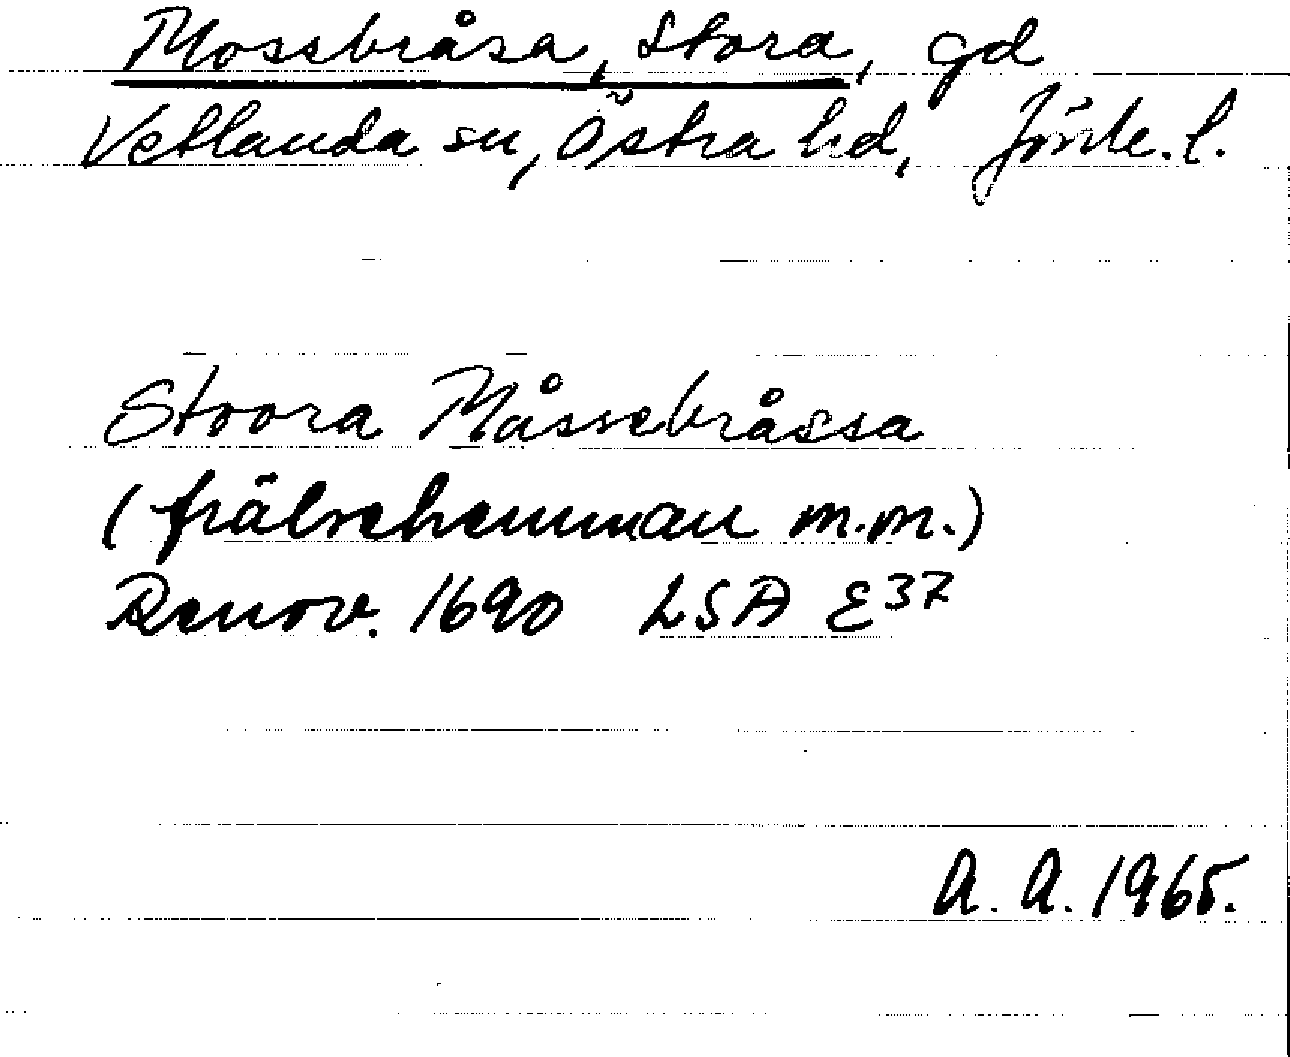 Mossebråsa, Stora, gd
Vetlanda sn, Östra hd, Jönk. l.
Stoora Måssebråssa
(frälsehemman m.m.)
Renov. 1690 LSA E37
A. A. 1965.